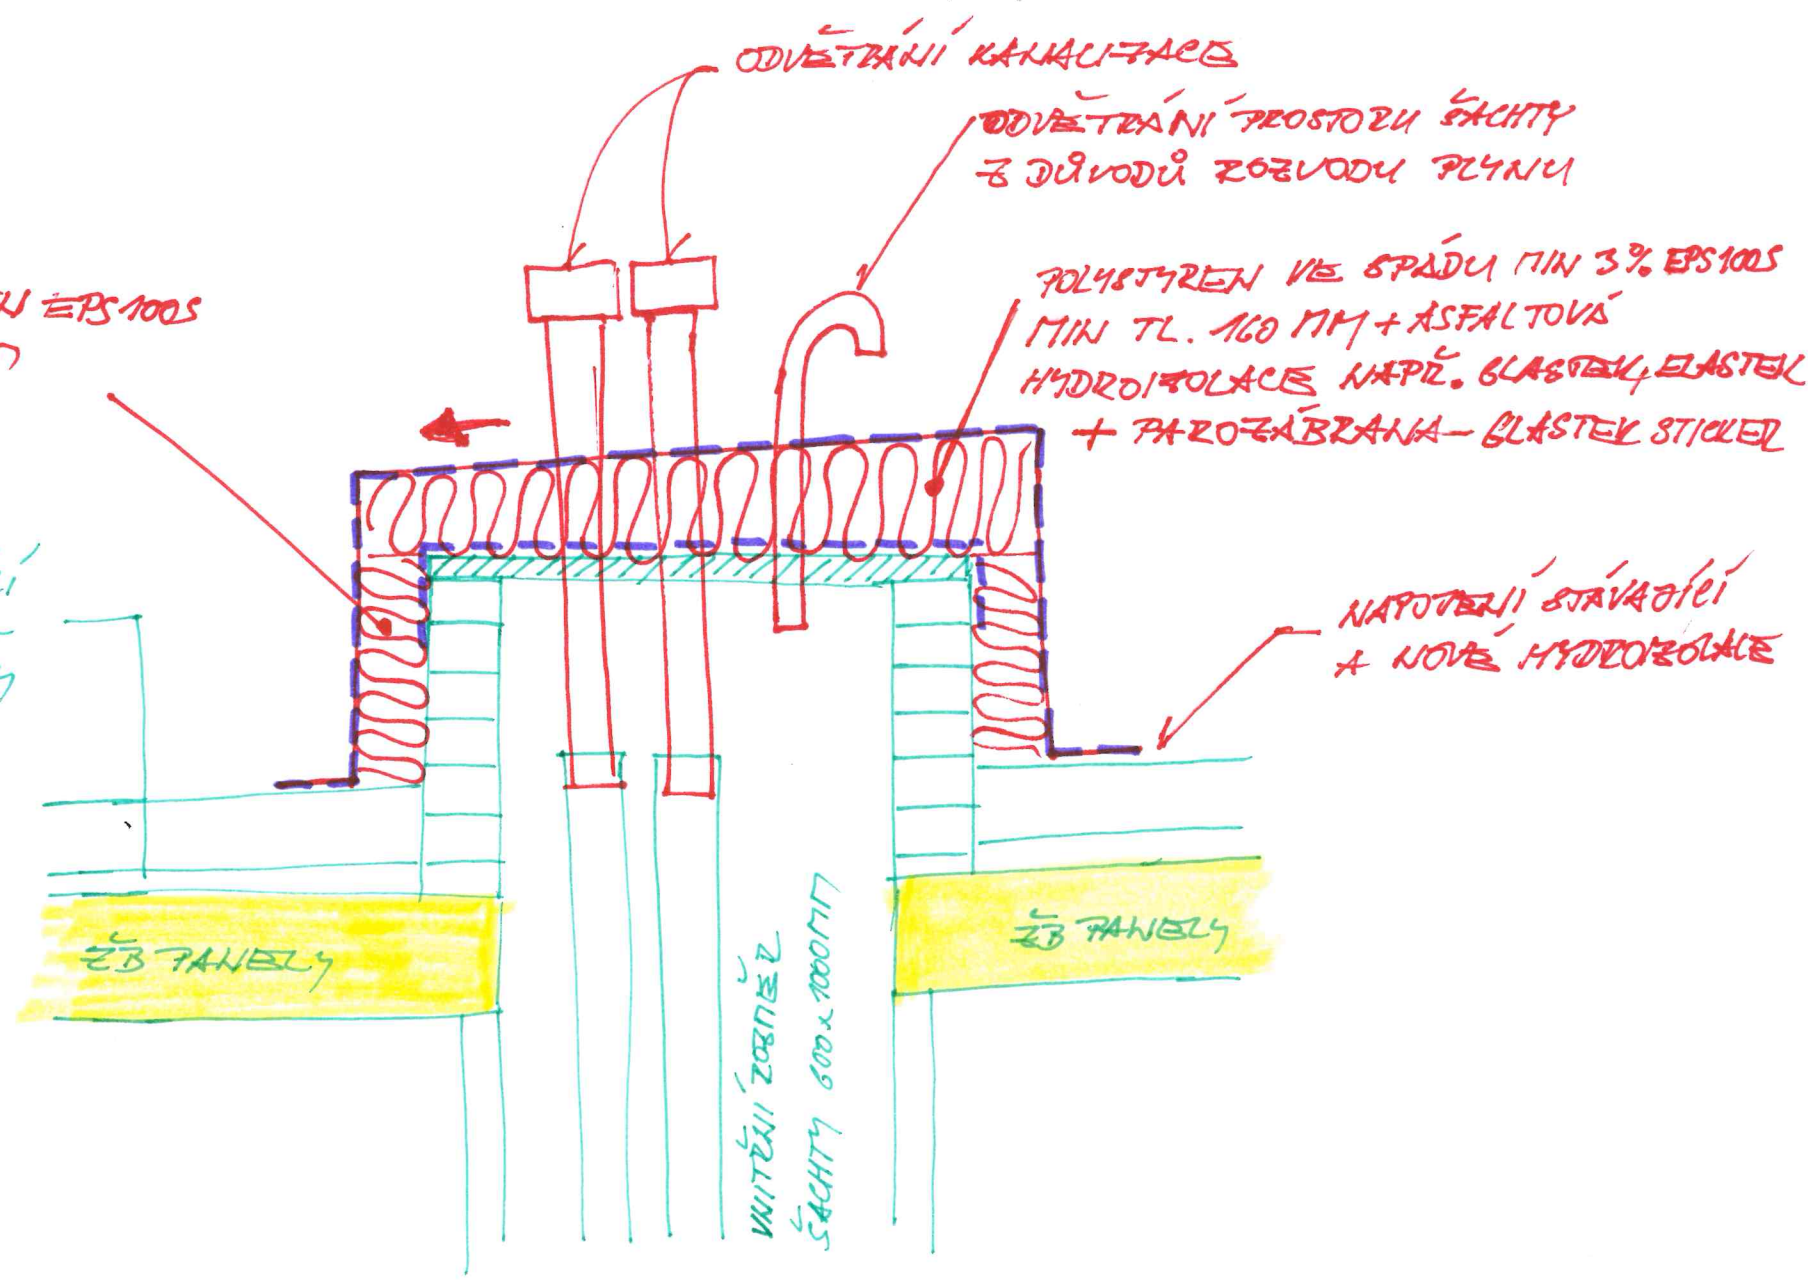 ODVĚTRÁNÍ KANALIZACE
ODVĚTRÁNÍ PROSTORU ŠACHTY
Z DŮVODŮ ROZVODU PLYNU
POLYSTYREN VE SPÁDU MIN 3% EPS100S
MIN TL. 160 MM + ASFALTOVÁ
HYDROIZOLACE NAPŘ. GLASTEK, ELASTEK
+ PAROZÁBRANA - GLASTEK STICKER
EPS100S
NAPOJENÍ STÁVAJÍCÍ
A NOVÉ HYDROIZOLACE
ŽB PANELY
ŽB PANELY
VNITŘNÍ ROZMĚR
ŠACHTY 600x1000MM